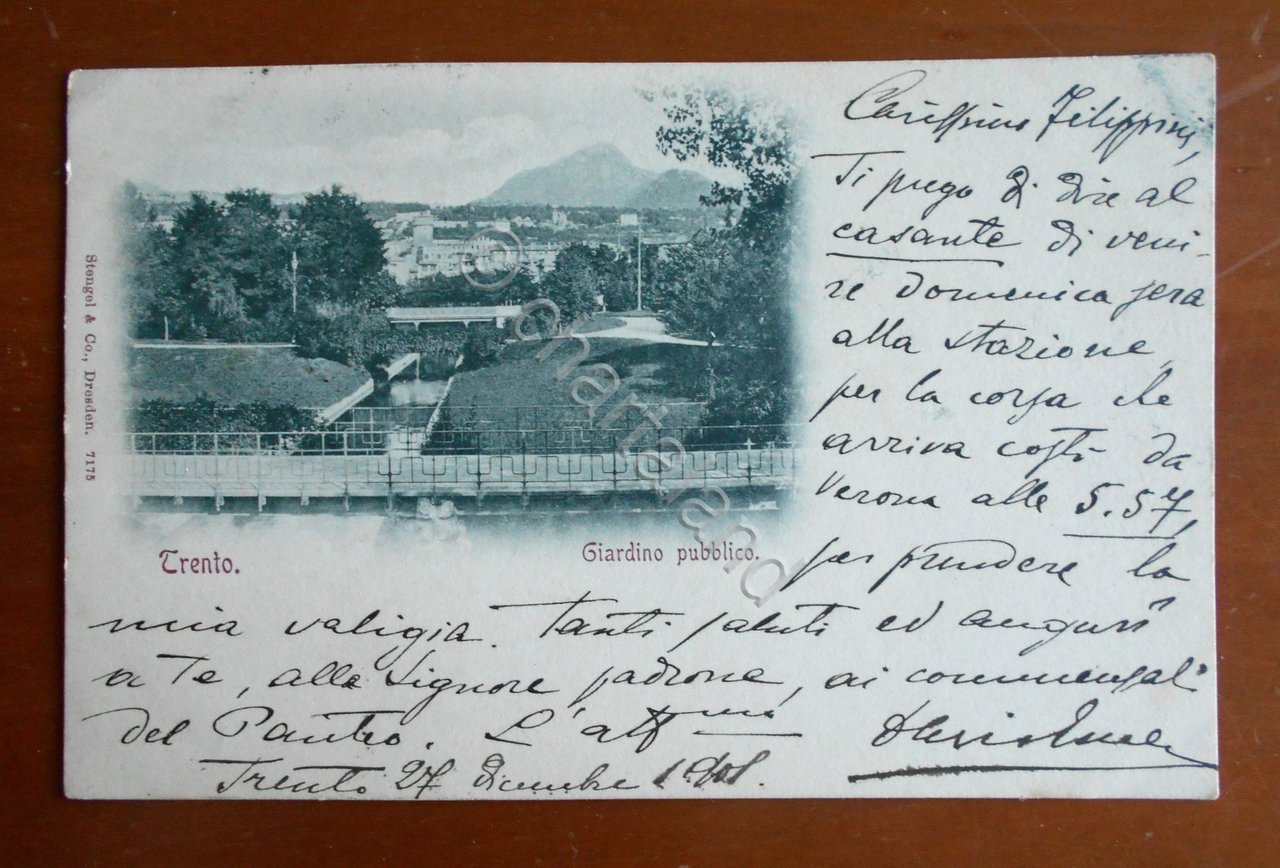 Carissimo Filippini,
Ti prego di dire al
casante di veni-
re domenica sera
alla stazione,
per la corsa che
arriva costì da
Verona alle 5.57,
per prendere la
mia valigia. Tanti saluti ed auguri
a Te, alle Signore padrone, ai commensali
del Panteo. L'aff mo
Trento 27 dicembre 1901.
Trento.
Giardino pubblico.
Stengel & Co., Dresden. 7175
© chartaland